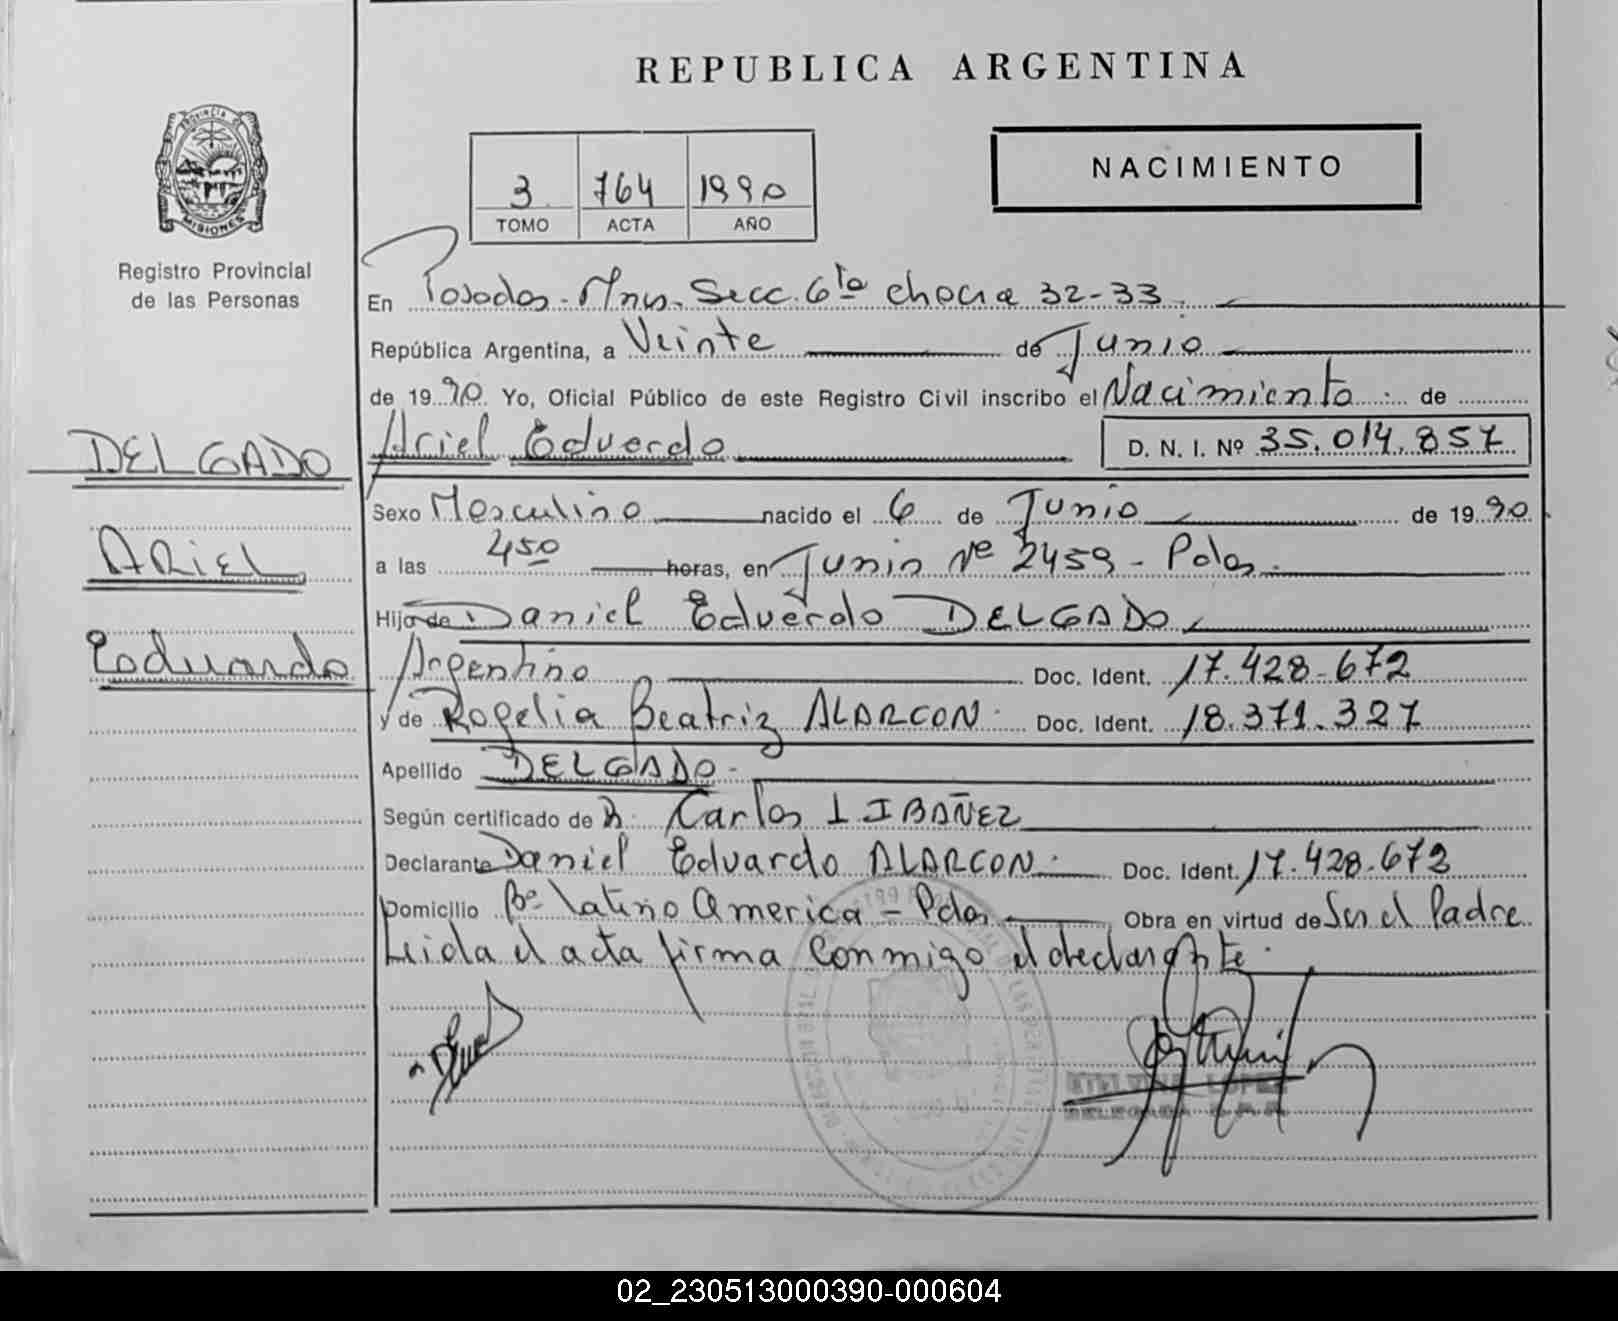 REPUBLICA ARGENTINA
PROVINCIA
MISIONES
Registro Provincial
de las Personas
3 764 1990
TOMO ACTA AÑO
NACIMIENTO
En Posadas - Mnes. Secc. 6ta chacra 32-33
República Argentina, a Veinte de Junio
de 1990. Yo, Oficial Público de este Registro Civil inscribo el Nacimiento de
DELGADO
Ariel Eduardo D. N. I. Nº 35.014.857
Sexo Masculino nacido el 6 de Junio de 1990
ARIEL
a las 450 horas, en Junio Nº 2459 - Pdas.
Hijo de Daniel Eduardo DELGADO
Eduardo
Argentino Doc. Ident. 17.428.672
y de Rogelia Beatriz ALARCON Doc. Ident. 18.371.327
Apellido DELGADO -
Según certificado de Dr. Carlos I IBAÑEZ
Declarante Daniel Eduardo ALARCON Doc. Ident. 17.428.673
Domicilio Bº Latino America - Pdas. Obra en virtud de Ser el Padre
Leida el acta firma Conmigo el declarante.
LOPEZ
DELEGADA
02_230513000390-000604